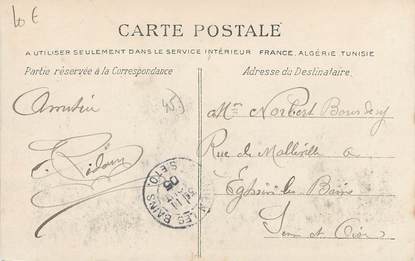 10 €
CARTE POSTALE
A UTILISER SEULEMENT DANS LE SERVICE INTÉRIEUR FRANCE, ALGÉRIE TUNISIE
Partie réservée à la Correspondance
Adresse du Destinataire.
Amitié
453
Norbert
Rue de Malleville a
Enghien les Bains
Seine et Oise
LES BAINS
05